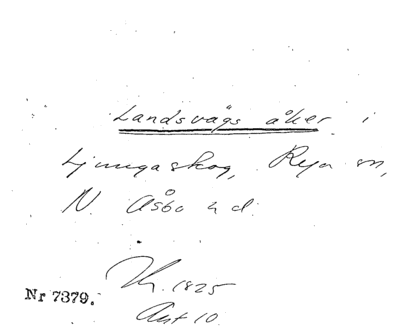 Landsvägs åker i
Ljungaskog, Rya sn,
N. Åsbo hd.
Nr 7379.
1825
Akt 10